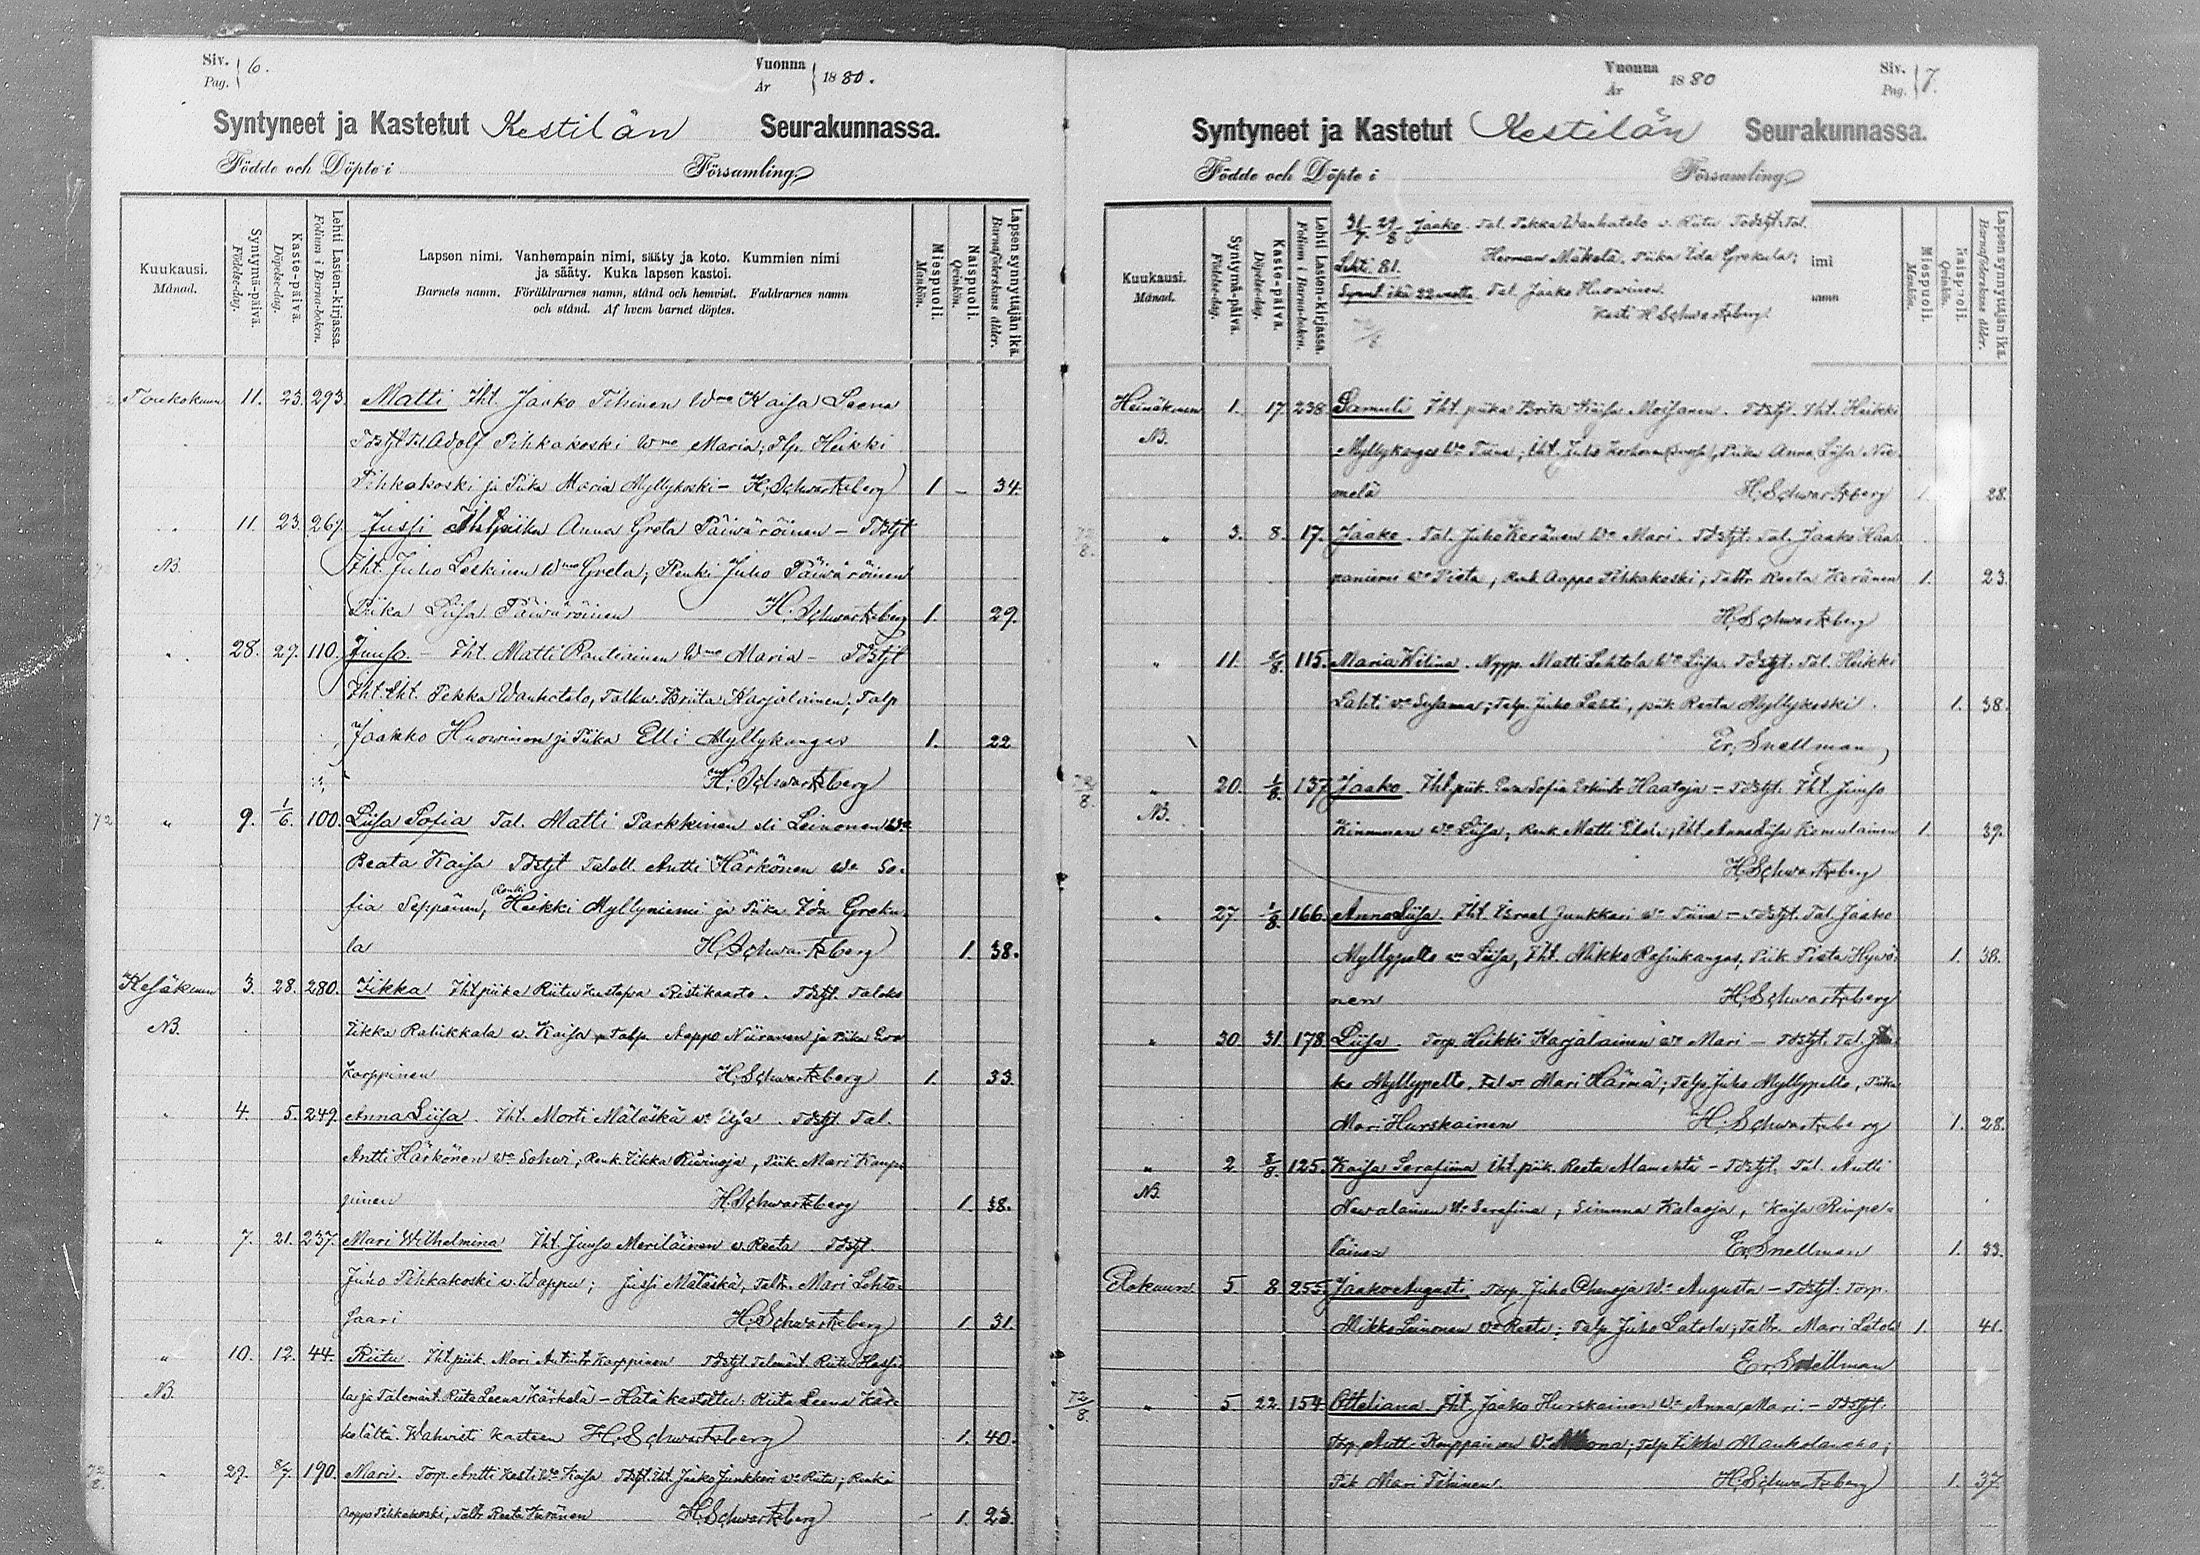 Siv. Pag. 6. Vuonna År 1880.
Syntyneet ja Kastetut Kestilän Seurakunnassa.
Födde och Döpte i Församling
Kuukausi. Månad.
Syntymä-päivä. Födelse-dag.
Kaste-päivä. Döpelse-dag.
Lehti Lasten-kirjassa. Folium i Barna-boken.
Lapsen nimi. Vanhempain nimi, sääty ja koto. Kummien nimi
ja sääty. Kuka lapsen kastoi.
Barnets namn. Föräldrarnes namn, stånd och hemvist. Faddrarnes namn
och stånd. Af hvem barnet döptes.
Miespuoli. Mankön.
Naispuoli. Qvinkön.
Lapsen synnyttäjän ikä. Barnaföderskans ålder.
Toukokuun 11. 23. 293. Matti Iht. Jaako Tihinen Wmo Kaisa Leena
Adolf Pihkakoski Wmo Maria; Heikki
Pihkakoski ja Piika Maria Myllykoski - H. Schwartzberg 1 - 34.
" 11. 23. 267. Jussi Iht. piika Anna Greta Päiwäröinen - Tdstjt
NB. Iht. Juho Leskinen Wmo Greta; Renki Juho Päiwäröinen
Piika Liisa Päiwäröinen H. Schwartzberg 1. 29.
" 28. 29. 110. Juuso - Iht. Matti Rautiainen Wmo Maria - Tdstjt
Iht. Pekka Wanhatalo, Briita Karjalainen; Talp
Jaakko Huowinen ja Piika Elli Myllykangas 1. 22
H. Schwartzberg
72 " 9. 1/6. 100. Liisa Sofia Tal. Matti Parkkinen eli Leinonen Wa
Beata Kaisa Tdstjt Antti Härkönen Wa So-
fia Seppänen, Renki Heikki Myllyniemi ja Piika Ida Greku-
la H. Schwartzberg 1. 38.
Kesäkuun 3. 28. 280. Iikka Iht piika Riitu Kustapa Ristikaarto. Tdstjt.
NB. Iikka Ratikkala w. Kaisa, talp. Aappo Niiranen ja Piika Eva
Karppinen H. Schwartzberg 1. 33.
" 4. 5. 249. Anna Liisa. Iht. Morti Mäläskä w. Eija. Tdstjt. Tal.
Antti Härkönen Wa Sohwi, Renk. Iikka Kiwinoja, Piik. Mari Kamp-
pinen H. Schwartzberg 1. 38.
" 7. 21. 237. Mari Wilhelmina Iht. Juuso Meriläinen w. Reeta Tdstjt.
Juho Pihkakoski w. Wappu; Jussi Mäläskä, Taltr. Mari Lehto-
saari H. Schwartzberg 1. 31.
" 10. 12. 44. Riitu. Iht. piik. Mari Antintr Karppinen Tdstjt Riitu
NB. ja Riita Leena Kärkelä - Hätä kastettu Riita Leena Kär-
kelältä. Wahwisti kasteen H. Schwartzberg 1. 40.
72/8. " 29. 8/7. 190. Mari. Torp. Antti Kesti Wa Kaisa Tdstjt. Iht. Jaako Junkkari wa Riitu; Renki
Aappo Pihkakoski, Taltr Reeta Keränen H. Schwartzberg 1. 23.
Vuonna År 1880 Siv. Pag. 7.
Syntyneet ja Kastetut Kestilän Seurakunnassa.
Födde och Döpte i Församling
31/7. 29/8 Jaako. Tal. Pekka Wanhatalo w. Riitu Tdstjt Tal.
Herman Mäkelä, Piika Ida Grekula;
Lehti 81.
Synnt. ikä 22 vuotta Tal. Jaako Huowinen.
Kasti H Schwartzberg.
Kuukausi. Månad.
Syntymä-päivä. Födelse-dag.
Kaste-päivä. Döpelse-dag.
Lehti Lasten-kirjassa. Folium i Barna-boken.
imi
namn
Miespuoli. Mankön.
Naispuoli. Qvinkön.
Lapsen synnyttäjän ikä. Barnaföderskans ålder.
Heinäkuun 1. 17. 238. Samuli Iht. piika Brita Kaisa Moisanen. Tdstjt. Iht. Heikki
NB. Myllykangas Wa Tiina; Iht. Juho Korhonen, Piika Anna Liisa Nie-
melä H. Schwartzberg 1. 28.
72/8. " 3. 8. 17. Jaako. Tal. Juho Keränen Wa Mari. Tdstjt. Tal. Jaako Haa-
paniemi wa Pieta, Renk Aappo Pihkakoski, Taltr Reeta Keränen 1. 23.
H. Schwartzberg
" 11. 8/8. 115. Maria Wilina. Nypp. Matti Lehtola Wa Liisa. Tdstjt. Tal. Heikki
Lahti wa Susanna; Talp. Juho Lahti, piik Reeta Myllykoski. 1. 38.
Er. Snellman
72/8. " 20. 1/8. 137. Jaako. Iht. piik. Eva Sofia Erkintr Haataja - Tdstjt. Iht. Juuso
NB. Kinnunen wa Liisa, Renk. Matti, Iht. Anna Liisa Komulainen 1. 39.
H. Schwartzberg
" 27 1/8. 166. Anna Liisa. Iht. Israel Junkkari wa Tiina - Tdstjt. Tal. Jaako
Myllypelto wa Liisa, Iht. Mikko Räsinkangas, Piik. Pieta Hywö-
nen H. Schwartzberg 1. 38.
" 30 31. 178. Liisa. Torp. Heikki Karjalainen wa Mari - Tdstjt. Tal. Jaa-
ko Myllypelto, Mari Härmä; Talp Juho Myllypelto, Piika
Mari Hurskainen H. Schwartzberg 1. 28.
" 2 8/8. 125. Kaisa Serafiina Iht. piik. Reeta - Tdstjt. Tal. Antti
NB. Newalainen W. Serafina, Simuna Kalaoja, Kaisa Rimpe-
läinen Er. Snellman 1. 33.
Elokuun 5 8 255. Jaako Augusti Torp. Juho Ohenoja Wa Augusta - Tdstjt. Torp.
Mikko Leinonen Wa Reeta; Talp Juho Latola; Taltr. Mari Latola 1. 41.
Er. Snellman
72/8. " 5 22 154 Otteliana Iht. Jaako Hurskainen Wa Anna Mari - Tdstjt.
Torp. Antti Kamppainen; Talp Iikka
Piik Mari Tihinen. H. Schwartzberg 1. 37